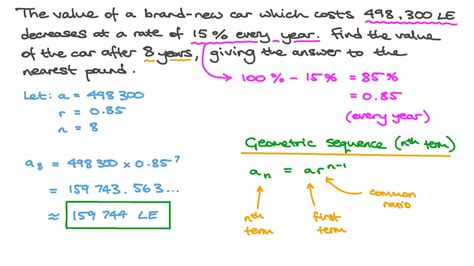 The value of a brand-new car which costs 498,300 LE
decreases at a rate of 15% every year. Find the value
of the car after 8 years, giving the answer to the
nearest pound.
100% - 15% = 85%
= 0.85
(every year)
Let: a = 498 300
r = 0.85
n = 8
a₈ = 498 300 × 0.85⁷
= 159 743.563...
≈ 159 744 LE
Geometric sequence (nth term)
aₙ = arⁿ⁻¹
nth
term
first
term
common
ratio